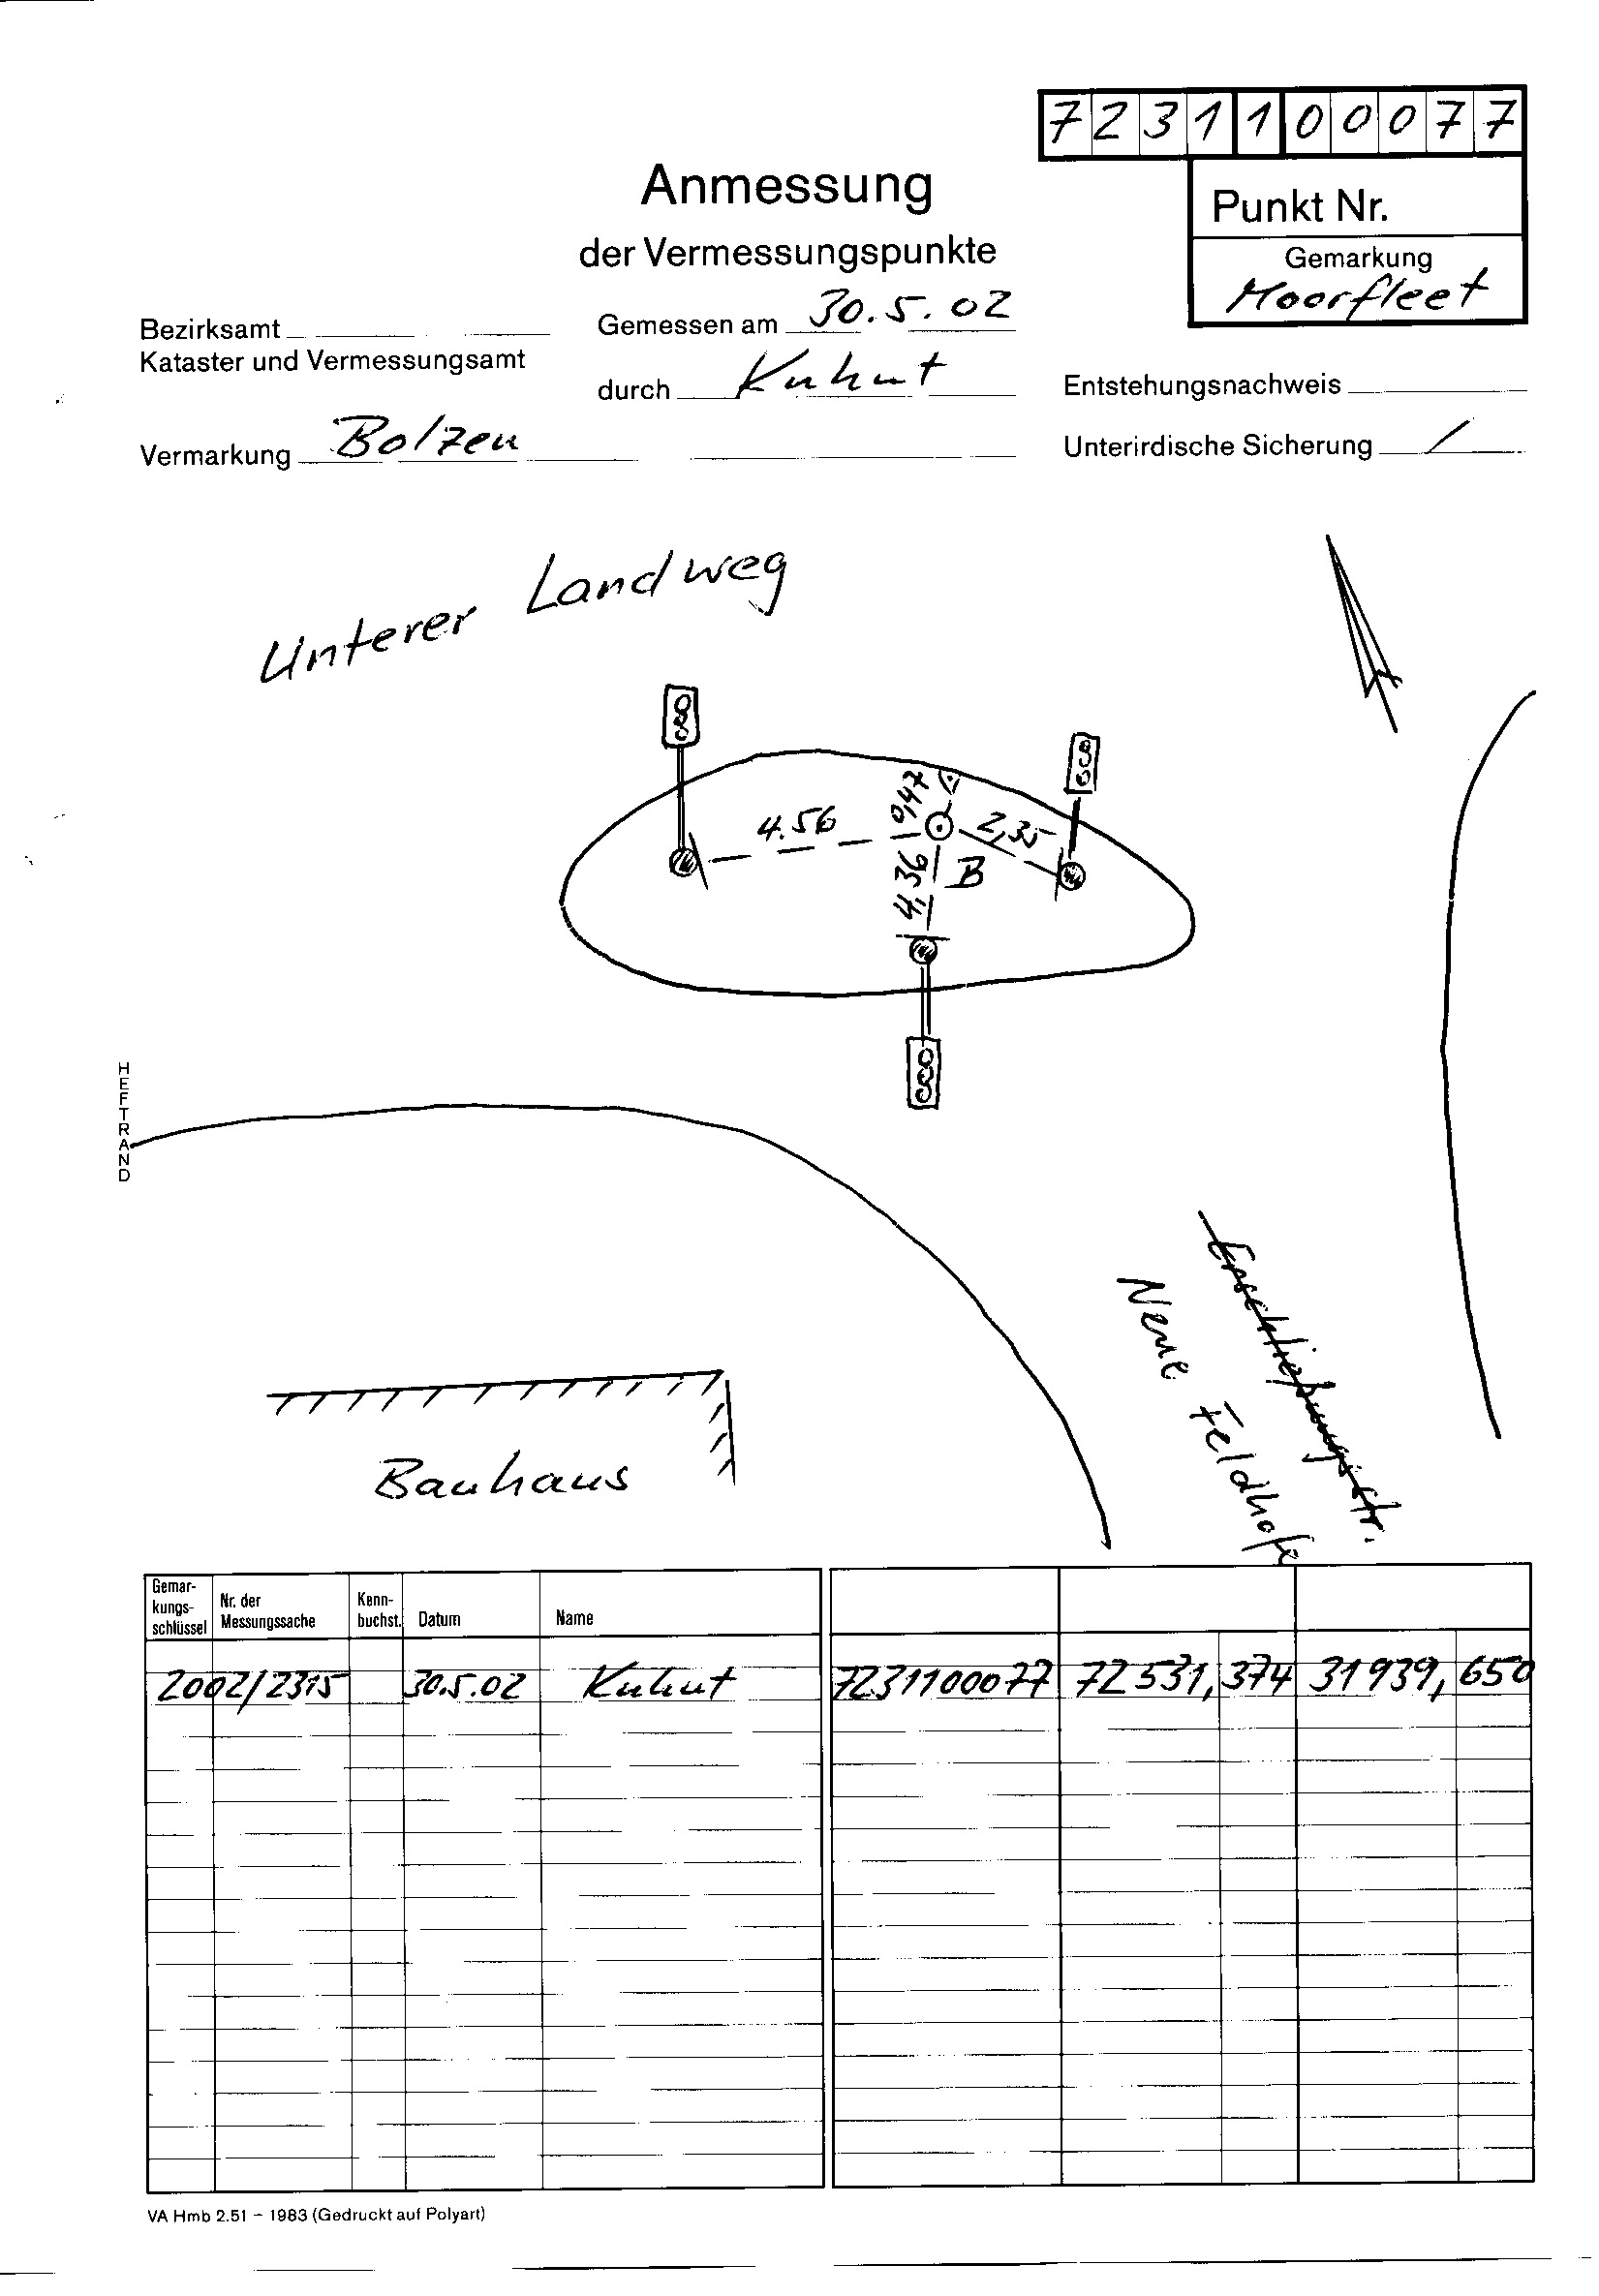 7231100077
Anmessung
der Vermessungspunkte
Punkt Nr.
Gemarkung
Moorfleet
Bezirksamt
Kataster und Vermessungsamt
Gemessen am 30.5.02
durch Kuhut
Entstehungsnachweis
Vermarkung Bolzen
Unterirdische Sicherung /
Unterer Landweg
4.56
0,47
2,35
4,36
B
HEFTRAND
Erschließungsstr.
Neue Feldhofe
Bauhaus
Gemar-
kungs-
schlüssel
Nr. der
Messungssache
Kenn-
buchst.
Datum
Name
2002/2315 30.5.02 Kuhut 7231100077 72531,374 31939,650
VA Hmb 2.51 – 1983 (Gedruckt auf Polyart)